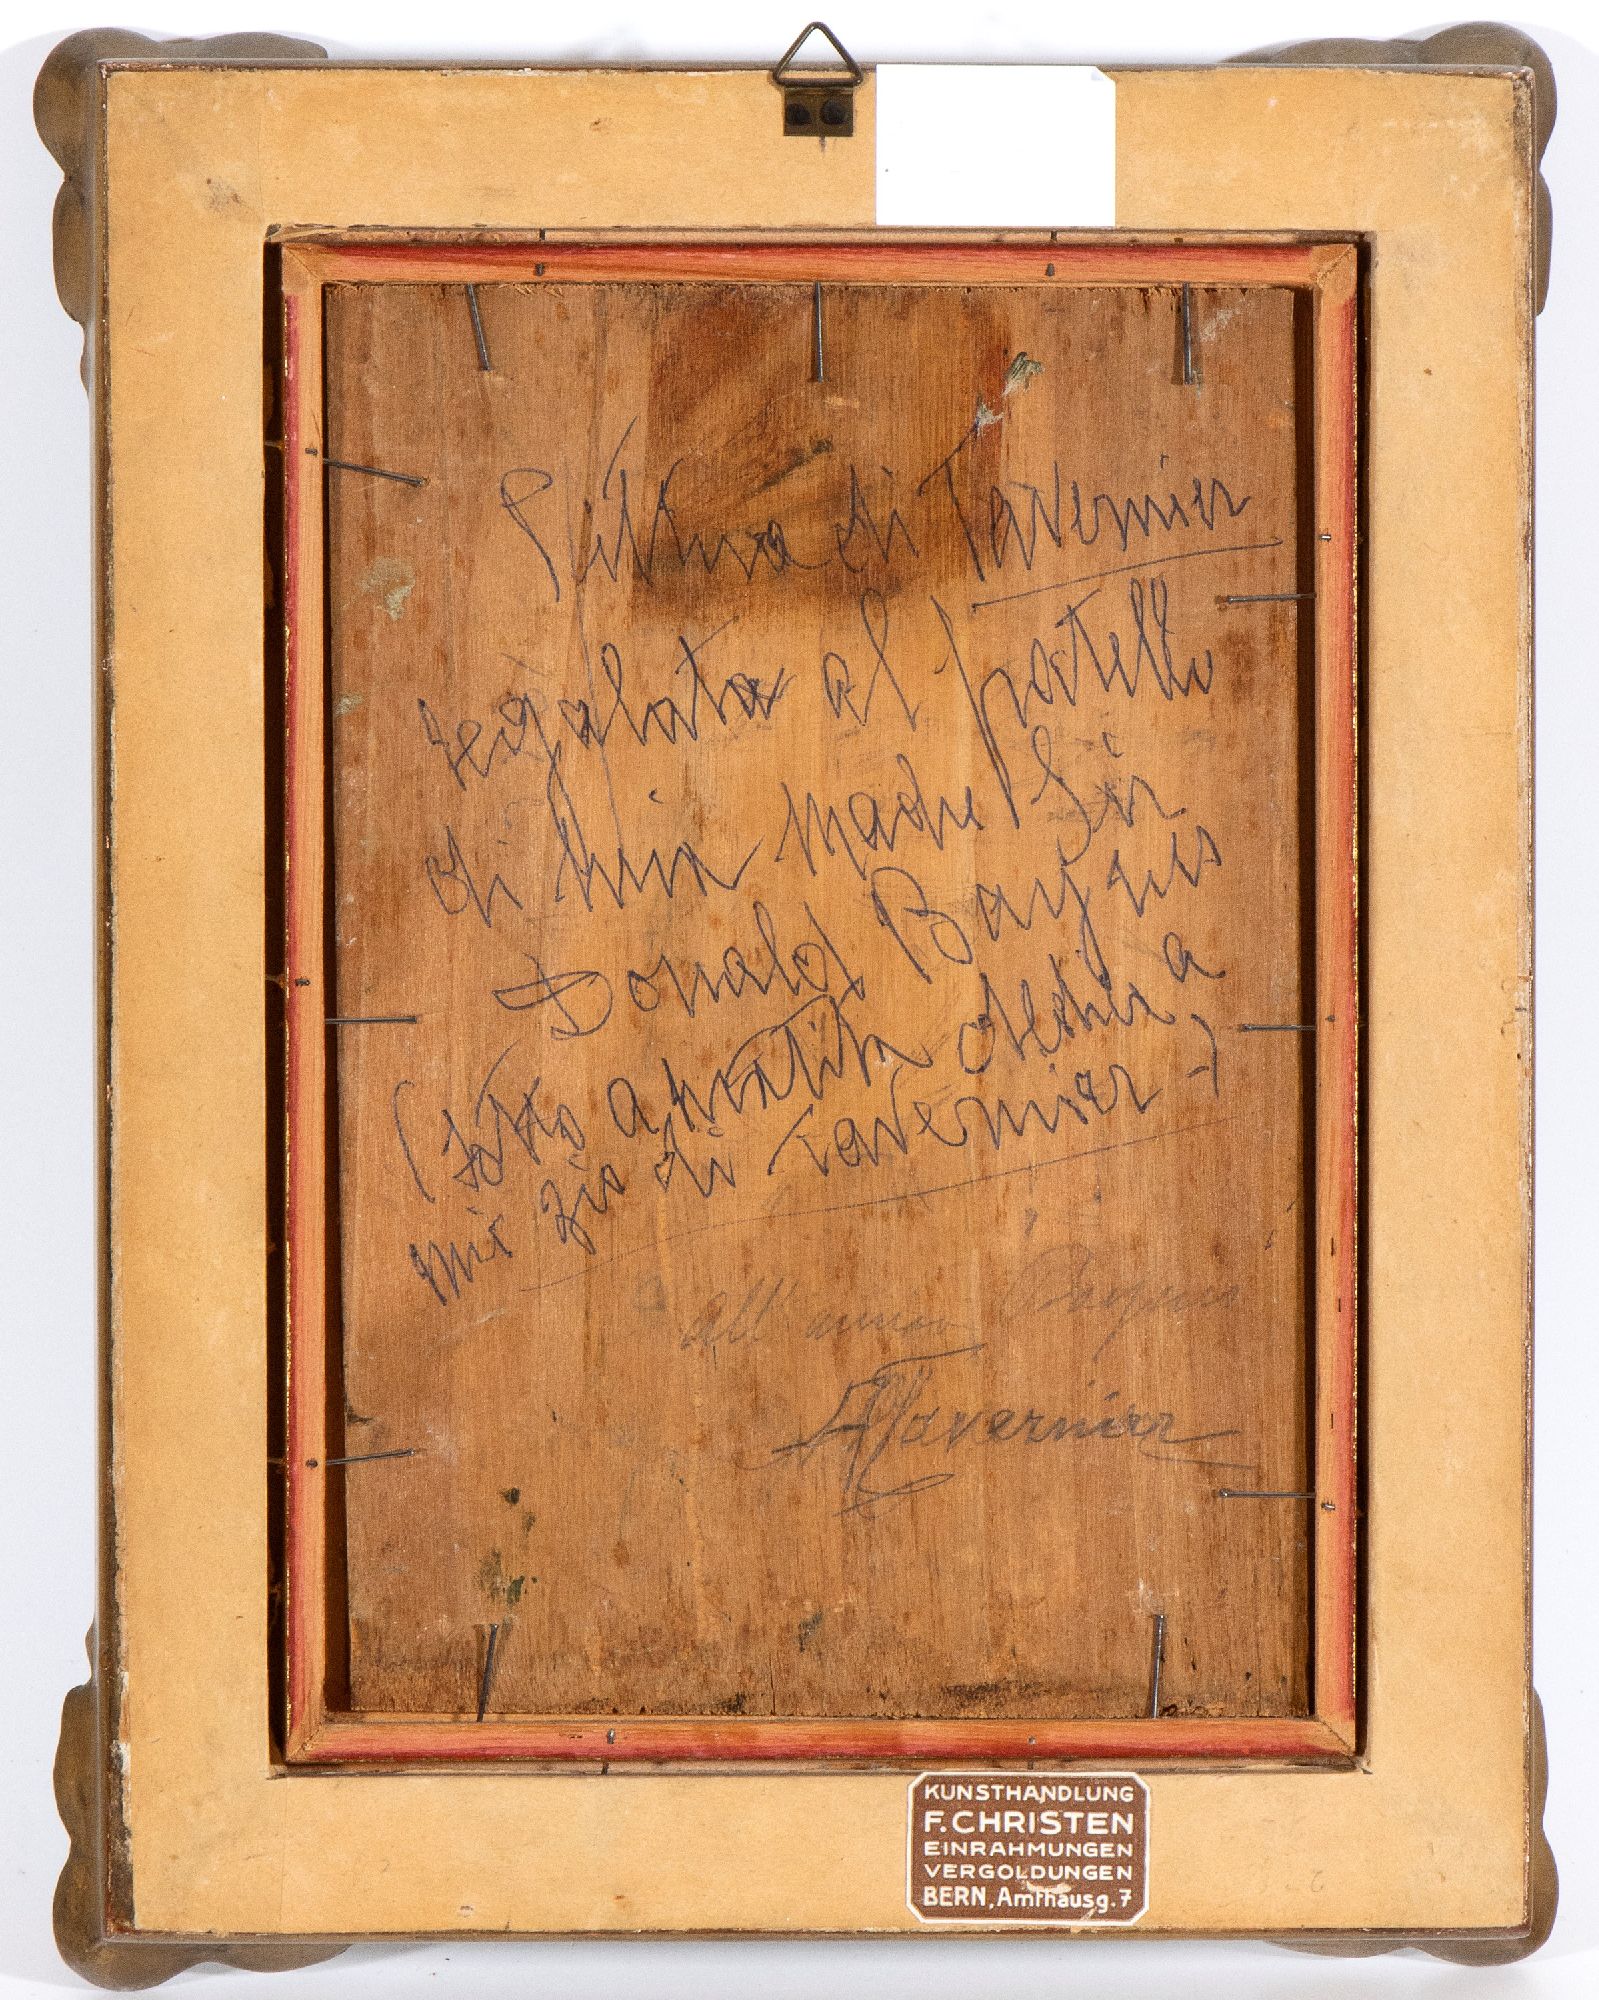 Pittura di Tavernier
regalata al fratello
di mia madre Sir
Donald Baynes
(sotto a matita dedica a
mio zio di Tavernier)
All' amico Baynes
A Tavernier
KUNSTHANDLUNG
F. CHRISTEN
EINRAHMUNGEN
VERGOLDUNGEN
BERN, Amthausg. 7